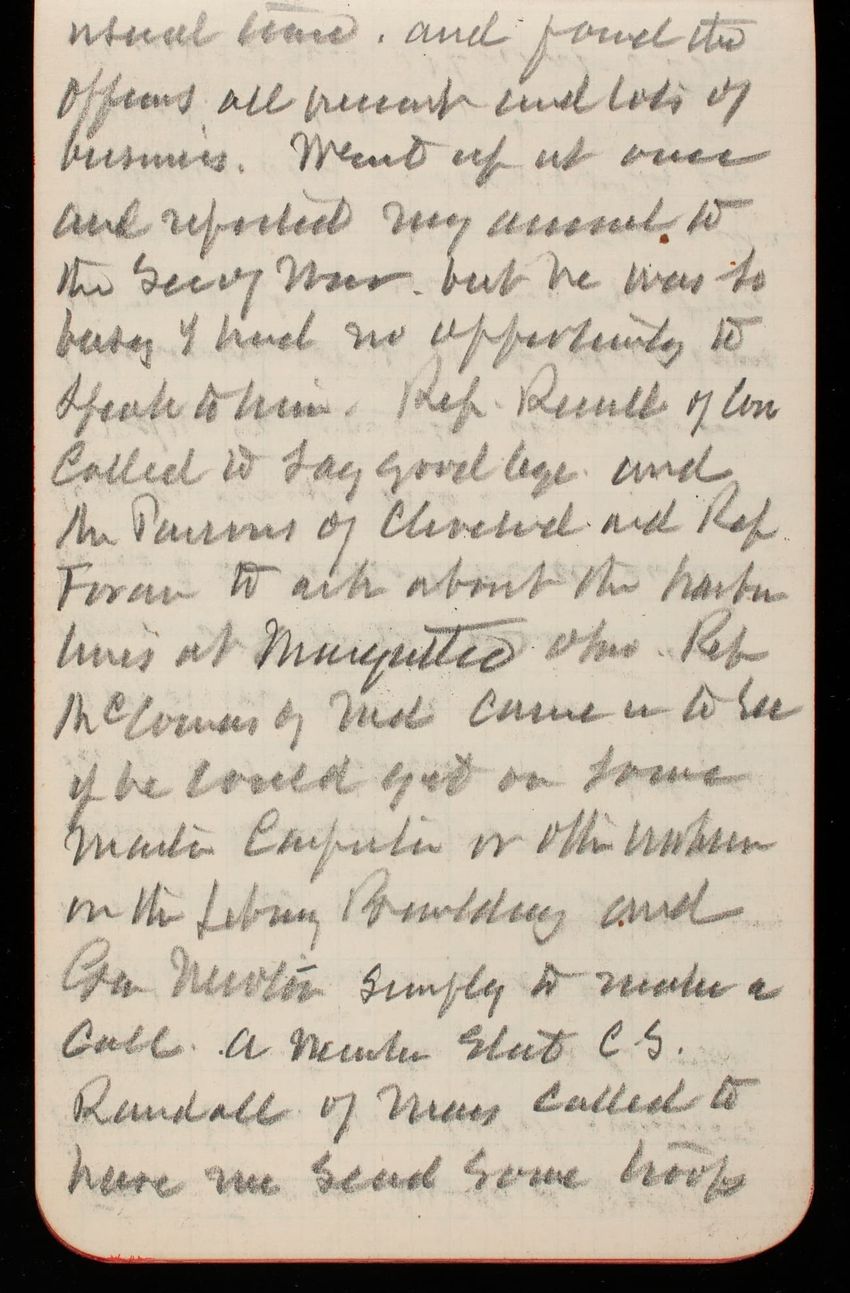 usual time. and found the
officers all present and lots of
business. Went up at once
and reported my arrival to
the Sec of War. but he was so
busy I had no opportunity to
speak to him. Rep. Russell of Con
Called to say good bye and
Mr Parsons of Cleveland and Rep
Foran to ask about the harbor
lines at Marquette Ohio. Rep
McComas of Md came in to see
if he could get on some
Master Carpenter or other
on the Library Building and
Gen Newton simply to make a
Call. A Member Elect C. S.
Randall of Mass called to
have me send some troops